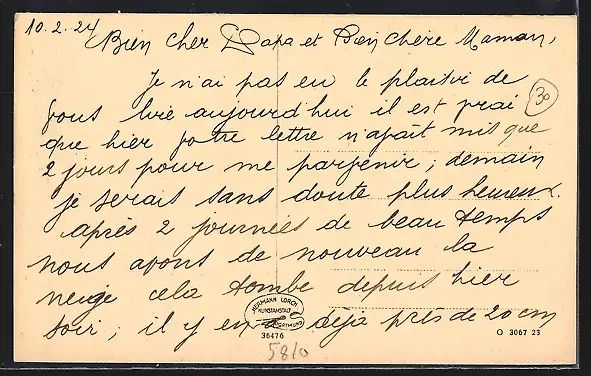 10.2.24
Bien cher Papa et Bien chère Maman,
Je n'ai pas eu le plaisir de
vous lire aujourd'hui il est vrai
30
que hier votre lettre n'avait mis que
2 jours pour me parvenir; demain
je serais sans doute plus heureux.
après 2 journées de beau temps
nous avons de nouveau la
neige cela tombe depuis hier
soir; il y en a déjà près de 20 cm
HERMANN LORCH
KUNSTANSTALT
DORTMUND
36476
O 3067 23
58/0